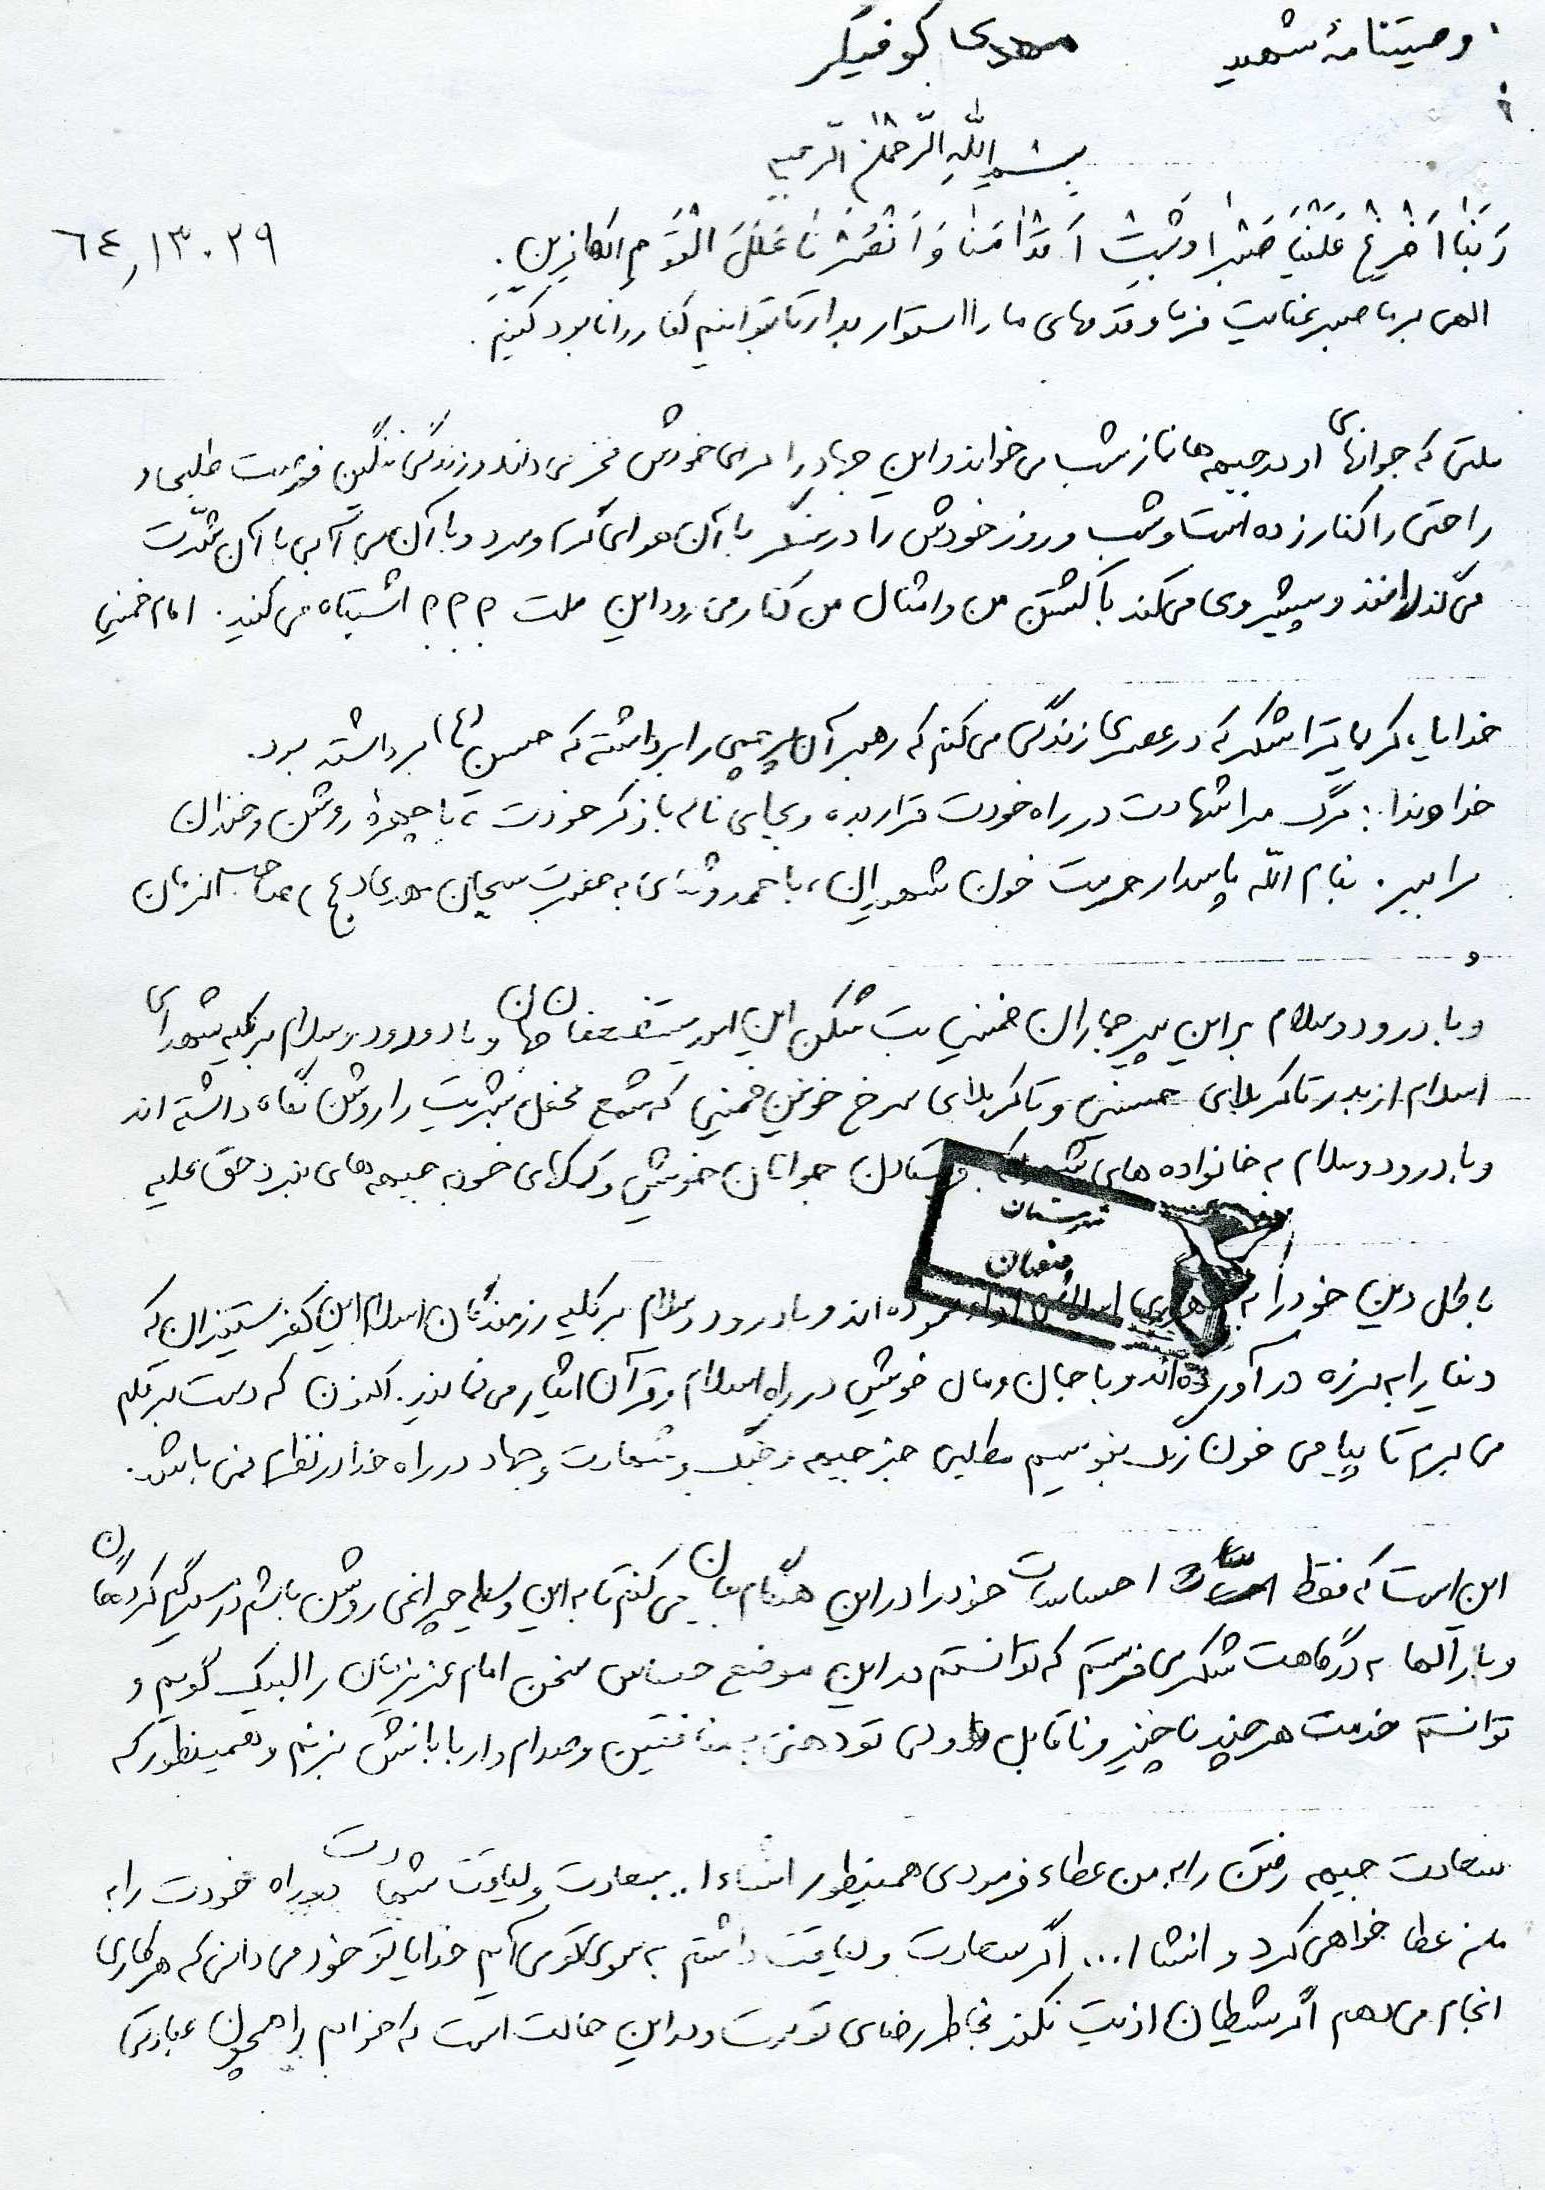 وصیتنامهٔ شهید مهدی کوفیگر
بسم اللهِ الرّحمٰن الرّحیم
رَبَّنا اَفْرِغْ عَلَیْنا صَبْراً وَ ثَبِّتْ اَقْدامَنا وَ انْصُرْنا عَلَی الْقَومِ الکافِرینَ.
الهی بر ما صبر عنایت فرما و قدمهای ما را استوار بدار تا بتوانیم کفار را نابود کنیم.
ملتی که جوانهای او در جبهه ها نماز شب می خواند و این جهاد را برای خودش فخر می داند و زندگی ننگین فرصت طلبی و
راحتی را کنار زده است و شب و روز خودش را در سنگر با آن هوای گرم و سرد و با آن بی آبی با آن شدّت
می گذراند و پیشروی می کند با کشتن من و امثال من کنار می رود این ملت ؟ ؟ ؟ اشتباه می کنید. امام خمینی
خدایا، کریما ترا شکر که در عصری زندگی می کنم که رهبر آن پرچمی را برداشته که حسین (ع) برداشته بود.
خداوندا: مرگ مرا شهادت در راه خودت قرار بده و بجای ناله با ذکر خودت، با چهرهٔ روشن و خندان
مرا ببر. بنام اللّه پاسدار حرمت خون شهیدان، با حمد و ثنای به حضرت سبحان مهدی (عج) صاحب الزمان
و
و با درود و سلام بر این پیر جماران خمینی بت شکن این امید مستضعفان جهان و با درود و سلام بر کلیه شهدای
اسلام از بدر تا کربلای حسینی و تا کربلای سرخ خونین خمینی که شمع محفل بشریت را روشن نگاه داشته اند
و با درود و سلام به خانواده های شهدا که جوانان خویش و کمکهای خود به جبهه های نبرد حق علیه
باطل دین خود را به اسلامی ادا نموده اند و با درود و سلام بر کلیه رزمندگان اسلام این کفر ستیزان که
دنیا را به لرزه در آورده اند و با جان و مال خویش در راه اسلام و قرآن ایثار می نمایند. اکنون که دست بر قلم
می برم تا پیامی خون رنگ بنویسم مطلبی جز جبهه و جنگ و شهادت و جهاد در راه خدا در نظرم نمی باشد.
این است که فقط احساسات خود را در این هنگام بیان می کنم تا به این وسیله چراغی روشن باشم در مسیر گم کردگان
و بار الها به درگاهت شکر می فرستم که توانستم در این موقع حساس سخن امام عزیزمان را لبیک گویم و
توانستم خدمت هر چند ناچیز و ناقابل ولی تو دهنی به منافقین و صدام و اربابانش بزنم و همینطور که
سعادت جبهه رفتن را به من عطاء فرمودی همینطور انشاءا.. سعادت و لیاقت شهادت در راه خودت را به
من عطا خواهی کرد و انشا ا... اگر سعادت و لیاقت داشتم به سوی تو می آیم خدایا تو خود می دانی که هر کاری
انجام می دهم اگر شیطان اذیت نکند بخاطر رضای توست و در این حالت است که خوابم را همچون عبادتی
٦٤٫١٣٠٢٩
شهرستان
اصفهان